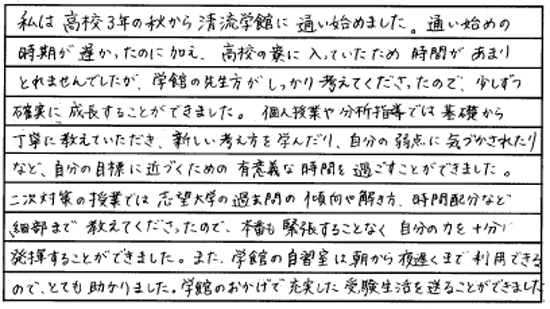 私は高校3年の秋から清流学館に通い始めました。通い始めの
時期が遅かったのに加え、高校の寮に入っていたため時間があまり
とれませんでしたが、学館の先生方がしっかり考えてくださったので、少しずつ
確実に成長することができました。個人授業や分析指導では基礎から
丁寧に教えていただき、新しい考え方を学んだり、自分の弱点に気づかされたり
など、自分の目標に近づくための有意義な時間を過ごすことができました。
二次対策の授業では志望大学の過去問の傾向や解き方、時間配分など
細部まで教えてくださったので、本番も緊張することなく自分の力を十分に
発揮することができました。また、学館の自習室は朝から夜遅くまで利用できる
ので、とても助かりました。学館のおかげで充実した受験生活を送ることができました